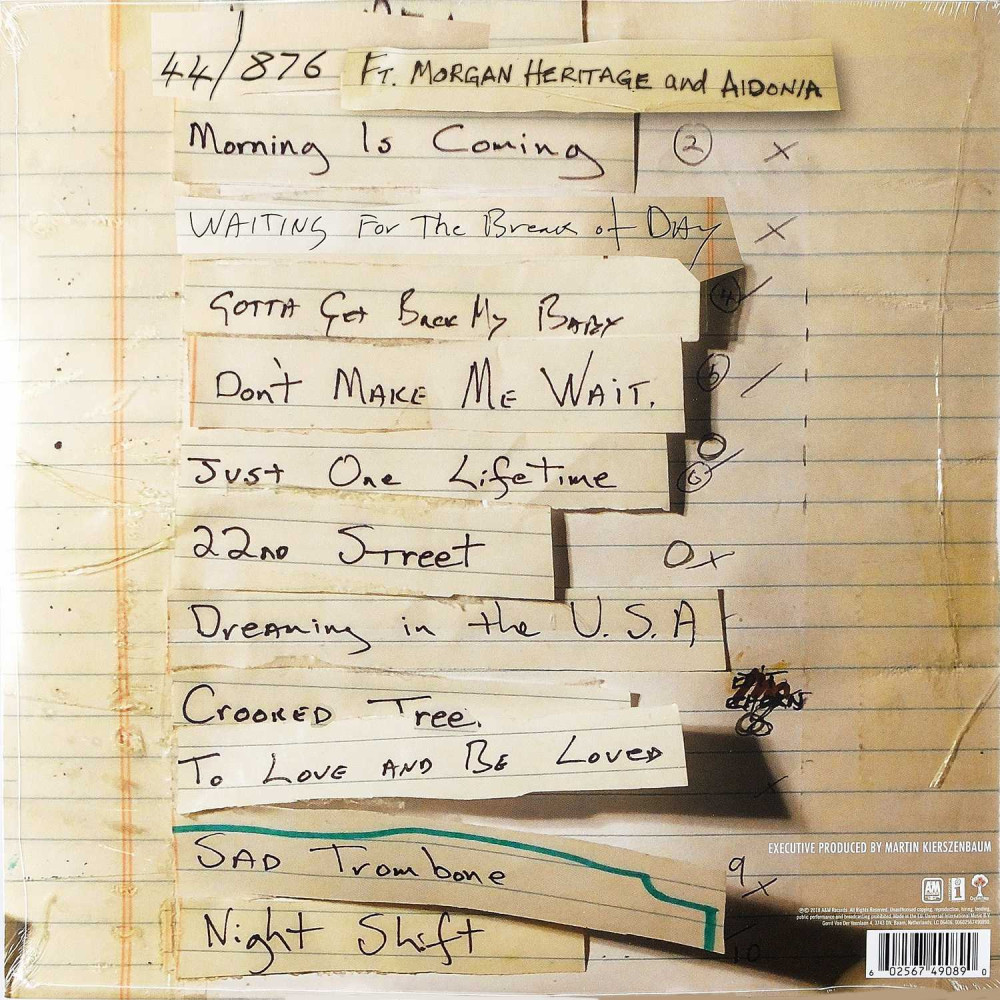 44/876 FT. MORGAN HERITAGE and AIDONIA
Morning Is Coming 2 x
WAITING For The Break of DAY x
GOTTA Get Back My BABY 4
Don't MAKE ME WAIT. 5
Just One LifeTime 6
22ND Street 0x
Dreaming in the U.S.A
8
CROOKED Tree.
To LOVE AND BE LOVED x
SAD Trombone 9 x
EXECUTIVE PRODUCED BY MARTIN KIERSZENBAUM
Night Shift 10
A&M
6 02567 49089 0